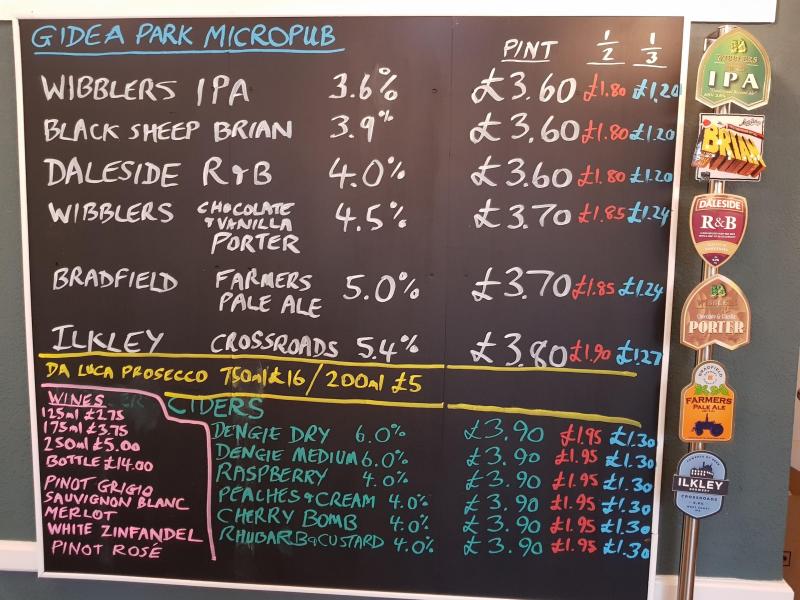 GIDEA PARK MICROPUB
PINT 1/2 1/3
WIBBLERS IPA 3.6% £3.60 £1.80 £1.20
BLACK SHEEP BRIAN 3.9% £3.60 £1.80 £1.20
DALESIDE R&B 4.0% £3.60 £1.80 £1.20
WIBBLERS CHOCOLATE 4.5% £3.70 £1.85 £1.24
& VANILLA
PORTER
BRADFIELD FARMERS 5.0% £3.70 £1.85 £1.24
PALE ALE
ILKLEY CROSSROADS 5.4% £3.80 £1.90 £1.27
DA LUCA PROSECCO 750ml £16 / 200ml £5
WINES
125ml £2.75
175ml £3.75
250ml £5.00
BOTTLE £14.00
PINOT GRIGIO
SAUVIGNON BLANC
MERLOT
WHITE ZINFANDEL
PINOT ROSE
CIDERS
DENGIE DRY 6.0% £3.90 £1.95 £1.30
DENGIE MEDIUM 6.0% £3.90 £1.95 £1.30
RASPBERRY 4.0% £3.90 £1.95 £1.30
PEACHES & CREAM 4.0% £3.90 £1.95 £1.30
CHERRY BOMB 4.0% £3.90 £1.95 £1.30
RHUBARB & CUSTARD 4.0% £3.90 £1.95 £1.30
WIBBLERS
IPA
BRIAN
DALESIDE
R&B
PORTER
BRADFIELD
FARMERS
PALE ALE
ILKLEY
BREWERY
CROSSROADS